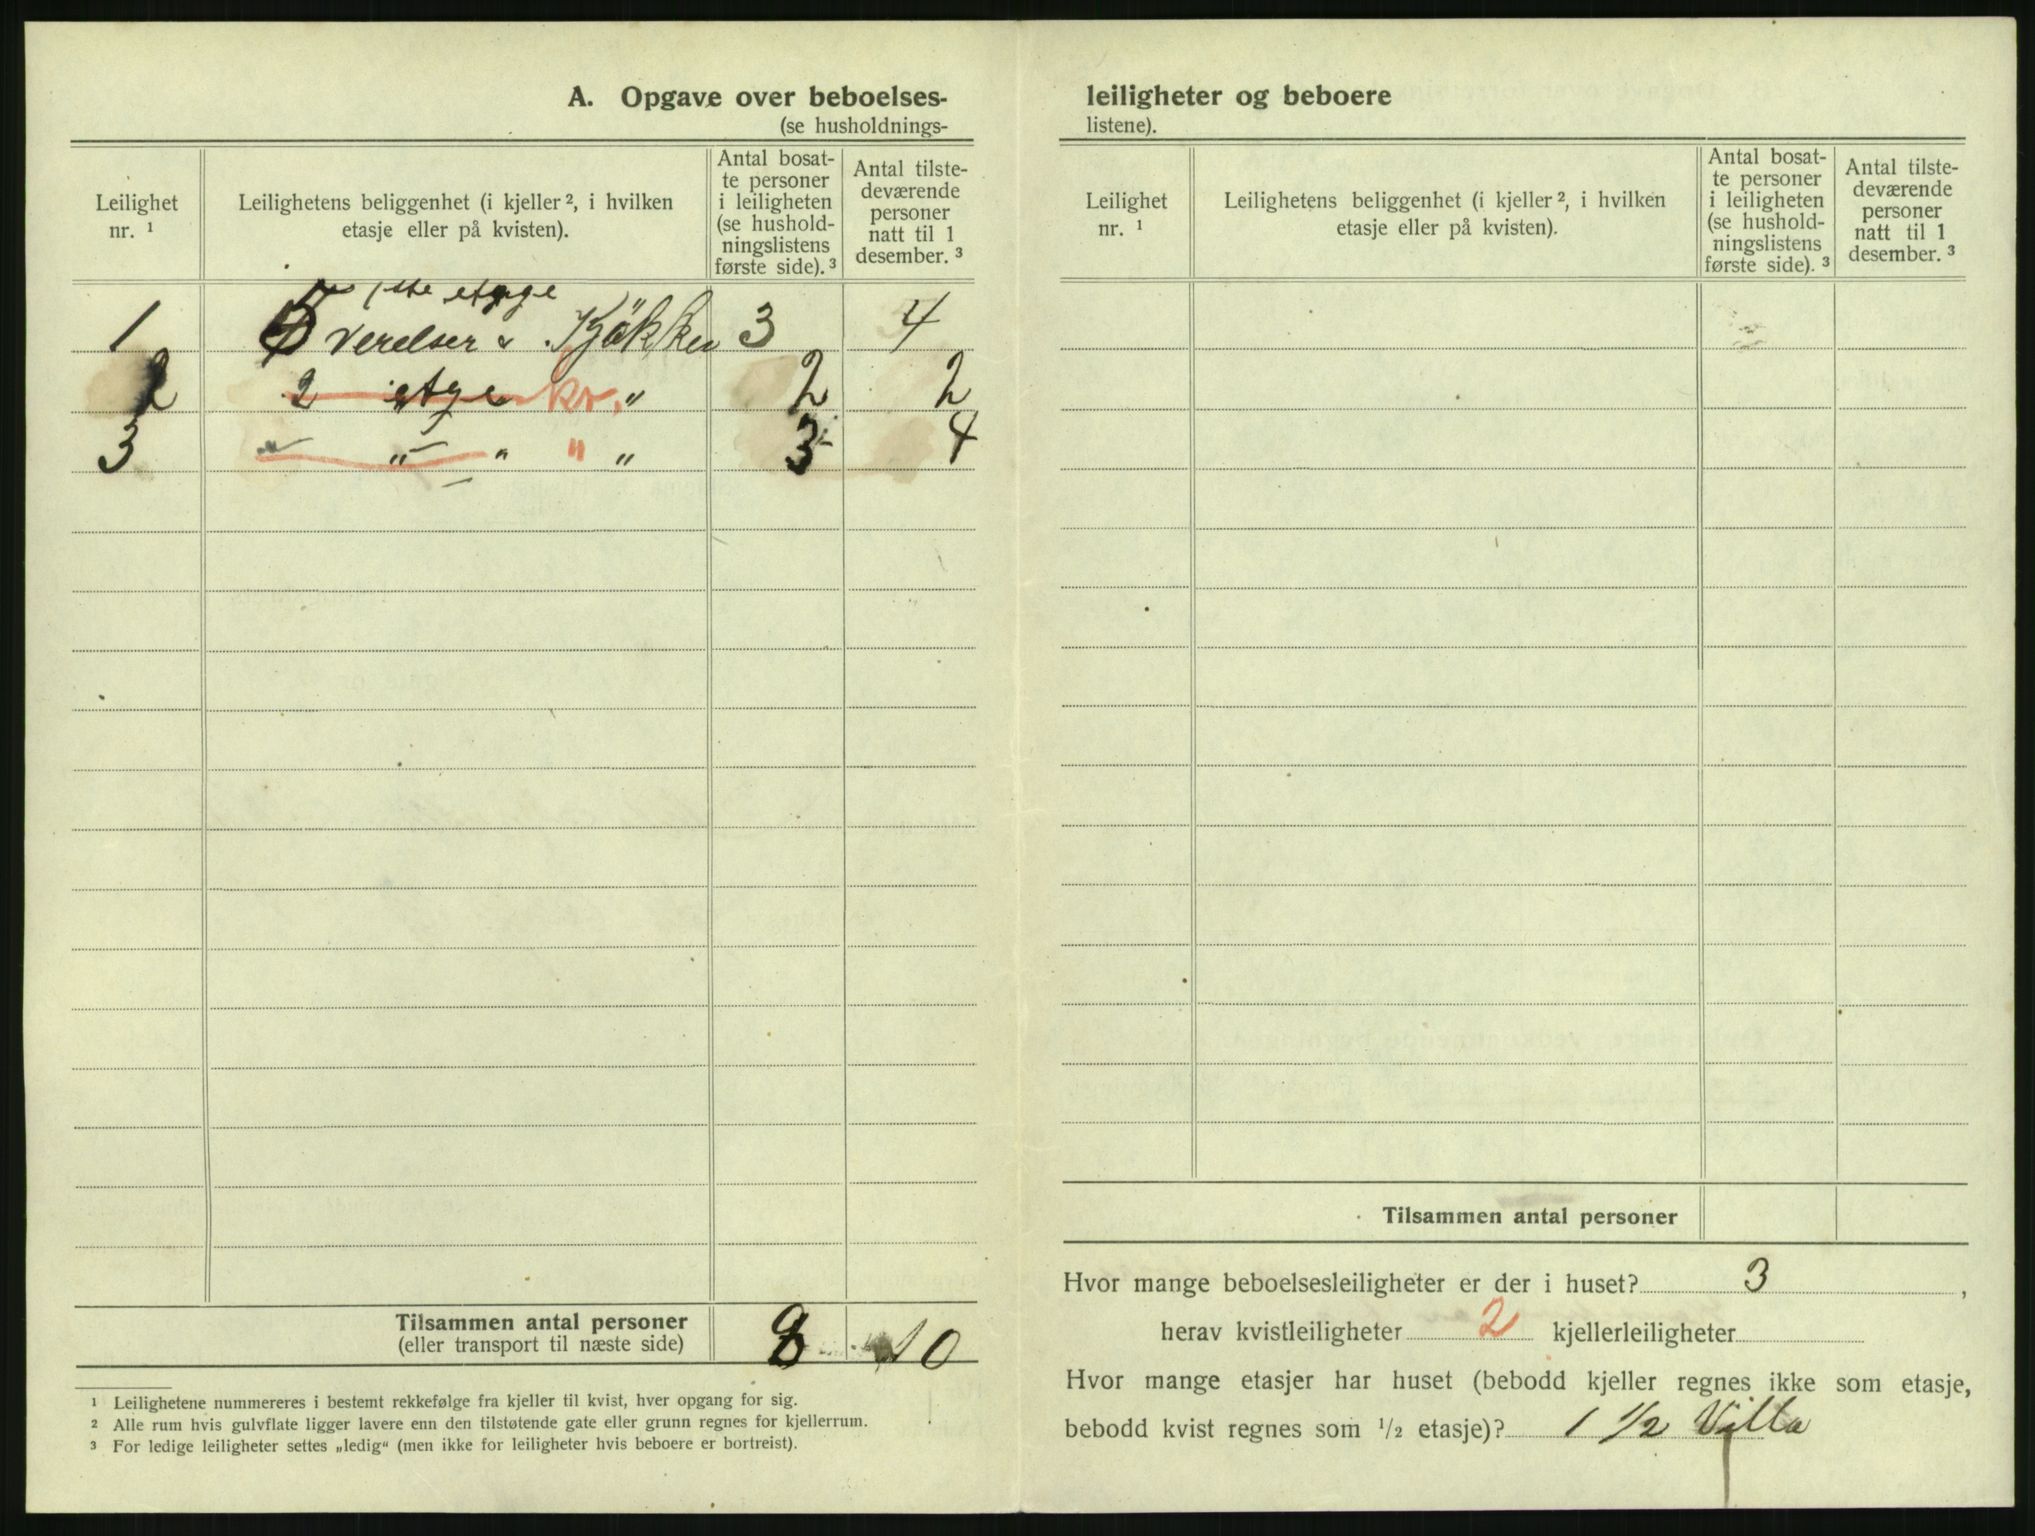 A. Opgave over beboelses-
(se husholdnings-
Leilighet nr. 1
Leilighetens beliggenhet (i kjeller 2, i hvilken etasje eller på kvisten).
Antal bosatte personer i leiligheten (se husholdningslistens første side). 3
Antal tilstedeværende personer natt til 1 desember. 3
1ste etage
1 værelser & Kjøkken 3 4
2 2 etage kv. " 2 2
3 " " " " " 3 4
Tilsammen antal personer 8 10
(eller transport til næste side)
1 Leilighetene nummereres i bestemt rekkefølge fra kjeller til kvist, hver opgang for sig.
2 Alle rum hvis gulvflate ligger lavere enn den tilstøtende gate eller grunn regnes for kjellerrum.
3 For ledige leiligheter settes „ledig“ (men ikke for leiligheter hvis beboere er bortreist).
leiligheter og beboere
listene).
Leilighet nr. 1
Leilighetens beliggenhet (i kjeller 2, i hvilken etasje eller på kvisten).
Antal bosatte personer i leiligheten (se husholdningslistens første side). 3
Antal tilstedeværende personer natt til 1 desember. 3
Tilsammen antal personer
Hvor mange beboelsesleiligheter er der i huset? 3 ,
herav kvistleiligheter 2 kjellerleiligheter
Hvor mange etasjer har huset (bebodd kjeller regnes ikke som etasje,
bebodd kvist regnes som 1/2 etasje)? 1 1/2 Villa